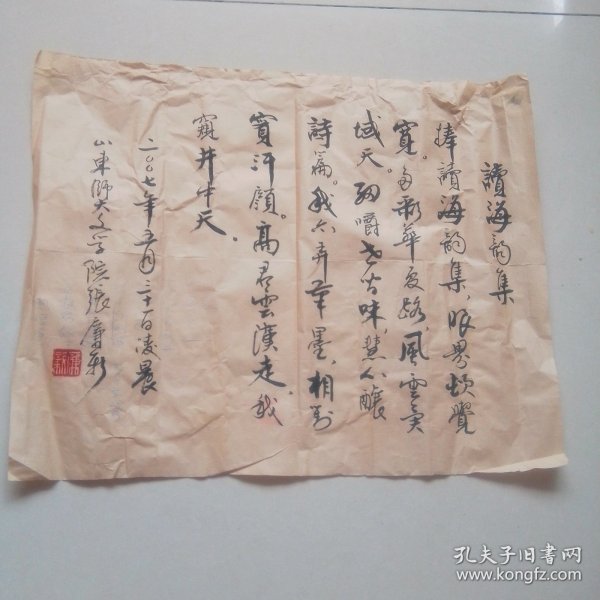 讀海韵集
捧讀海韵集，眼界頓覺
寬。多彩華夏路，風雲異
域天。細嚼世皆味，慧人釀
詩篇。我亦弄筆墨，相對
實汗顔。高君雲漢走，我
窺井中天。
二〇〇七年五月三十一日凌晨
山東師大文学院張
孔夫子旧书网
www.kongfz.com